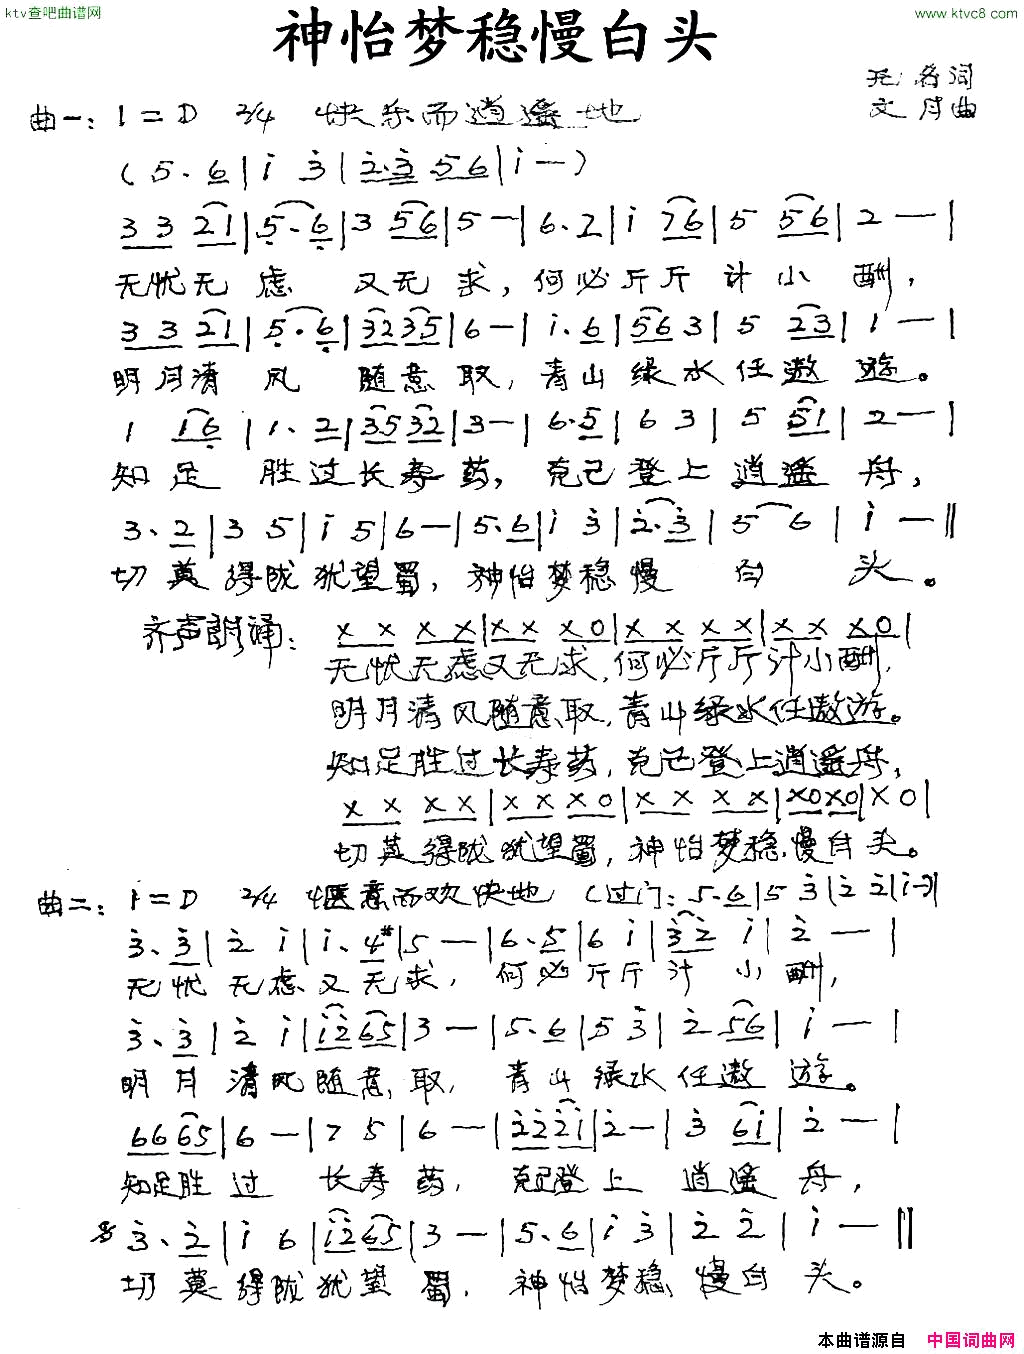 ktv查吧曲谱网
www.ktvc8.com
神怡梦稳慢白头
无名词
文月曲
曲一：1=D 2/4 快乐而逍遥地
(5. 6|i 3|2.3 56|i —)
3 3 21|5. 6|3 56|5 —|6. 7|i 76|5 56|2 —|
无忧无虑 又无求，何必斤斤计小酬，
3 3 21|5. 6|32 35|6 —|i. 6|56 3|5 23|1 —|
明月清风 随意取，青山绿水任遨游。
1 16|1. 2|35 32|3 —|6. 5|6 3|5 51|2 —|
知足 胜过长寿药，克己登上逍遥舟，
3. 2|3 5|i 5|6 —|5. 6|i 3|2. 3|5 6|i —‖
切莫得陇犹望蜀，神怡梦稳慢 白 头。
齐声朗诵：X X X X|X X X 0|X X X X|X X X 0|
无忧无虑又无求，何必斤斤计小酬，
明月清风随意取，青山绿水任遨游。
知足胜过长寿药，克己登上逍遥舟，
X X X X|X X X 0|X X X X|X0 X0|X 0|
切莫得陇犹望蜀，神怡梦稳慢白头。
曲二：1=D 2/4 惬意而欢快地 (过门：5. 6|5 3|2 2|i —)
3. 3|2 i|i. 4#|5 —|6. 5|6 i|3 2 i|2 —|
无忧无虑又无求，何必斤斤计小酬，
3. 3|2 i|i2 65|3 —|5. 6|5 3|2 56|i —|
明月清风随意取，青山绿水任遨游。
66 65|6 —|7 5|6 —|22 2i|2 —|3 6i|2 —|
知足胜过 长寿药，克己登上 逍遥舟，
3. 2|i 6|i2 65|3 —|5. 6|i 3|2 2|i —‖
切莫得陇犹望蜀，神怡梦稳慢白头。
本曲谱源自 中国词曲网